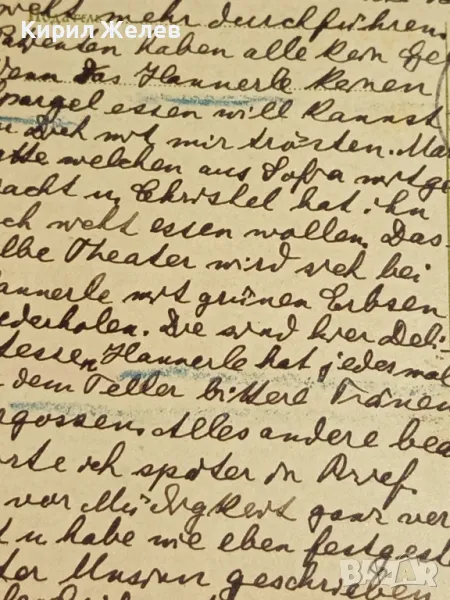 Кирил Желев
weht mehr durchführen.
haben alle kein Ge
Wenn das Hannerle keinen
pargel essen will kannst
u Dich mit mir trösten. Ma
atte welchen aus Sofia mitge
racht u. Christel hat ihn
ch weht essen wollen. Das
elbe Theater wird sich bei
annerle mit grünen Erbsen
iederholen. Die sind hier Deli
tessen, Hannerle hat jedesmal
dem Teller bittere Tränen
rgossen. Alles andere bea
orte ich später in Brief.
vor Müdigkeit ganz ver
t u habe wie eben festgest
ter Unsinn geschrieben
bazar